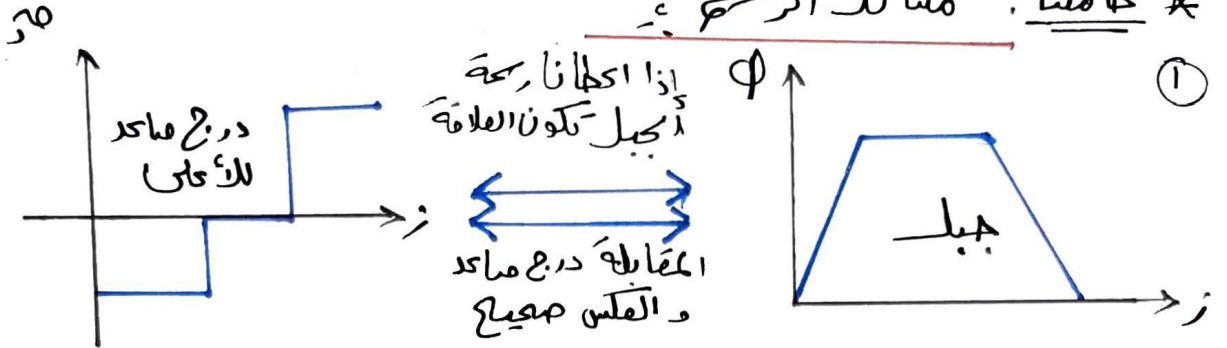 * خامسًا : مسائل الرسم :
①
Φ
جبل
ز
إذا اعطانا رسمة
الجبل تكون العلاقة
المقابلة درج صاعد
و العكس صحيح
درج صاعد
للأعلى
ز